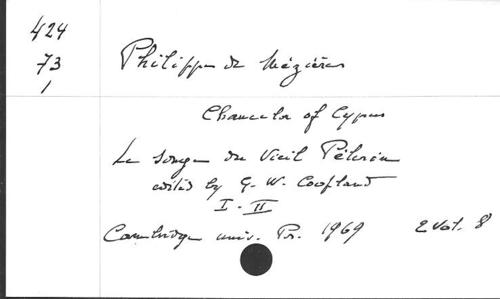 424
73
1
Philippe de Mézières
Chancelor of Cyprus
Le Songe du Vieil Pèlerin
edited by G. W. Coopland
I - II
Cambridge univ. Pr. 1969 2 Vol. 8